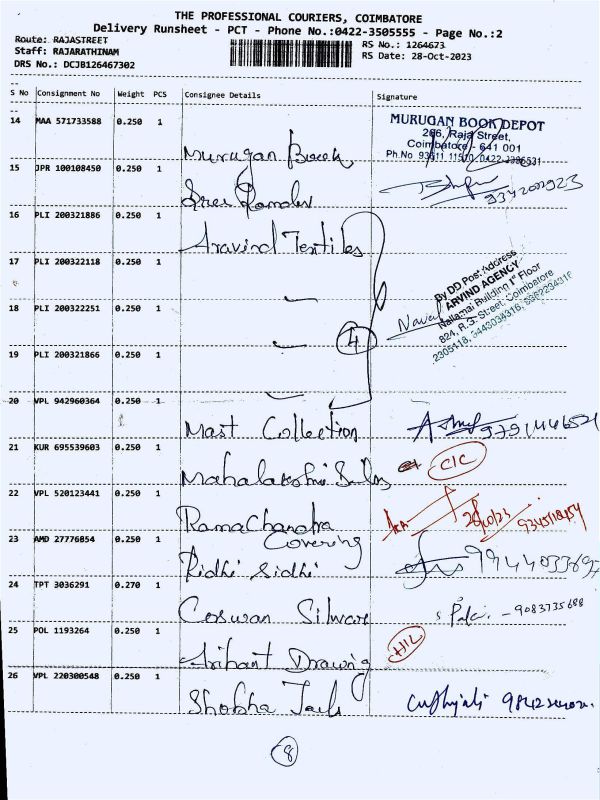 THE PROFESSIONAL COURIERS, COIMBATORE
Delivery Runsheet - PCT - Phone No.:0422-3505555 - Page No.:2
Route: RAJASTREET
RS No.: 1264673
Staff: RAJARATHINAM
RS Date: 28-Oct-2023
DRS No.: DCJB126467302
S No Consignment No Weight PCS Consignee Details Signature
14 MAA 571733588 0.250 1
MURUGAN BOOK DEPOT
286, Raja Street,
Coimbatore - 641 001
Ph.No
Murugan Book
15 JPR 100108450 0.250 1
Sree Ramdev
9342002923
16 PLI 200321886 0.250 1
Aravind Textiles
17 PLI 200322118 0.250 1
By DD Post Address
ARVIND AGENCY
Nallamai Building 1st Floor
824, R.G. Street, Coimbatore
18 PLI 200322251 0.250 1
4
19 PLI 200321866 0.250 1
20 VPL 942960364 0.250 1
Mast Collection
21 KUR 695539603 0.250 1
Mahalakshmi
C/C
22 VPL 520123441 0.250 1
RamaChandra
Covering
23 AMD 27776854 0.250 1
Ridhi Sidhi
24 TPT 3036291 0.270 1
Coswan Silware
9083735688
25 POL 1193264 0.250 1
Arihant Drawing
26 VPL 220300548 0.250 1
Shobha
8